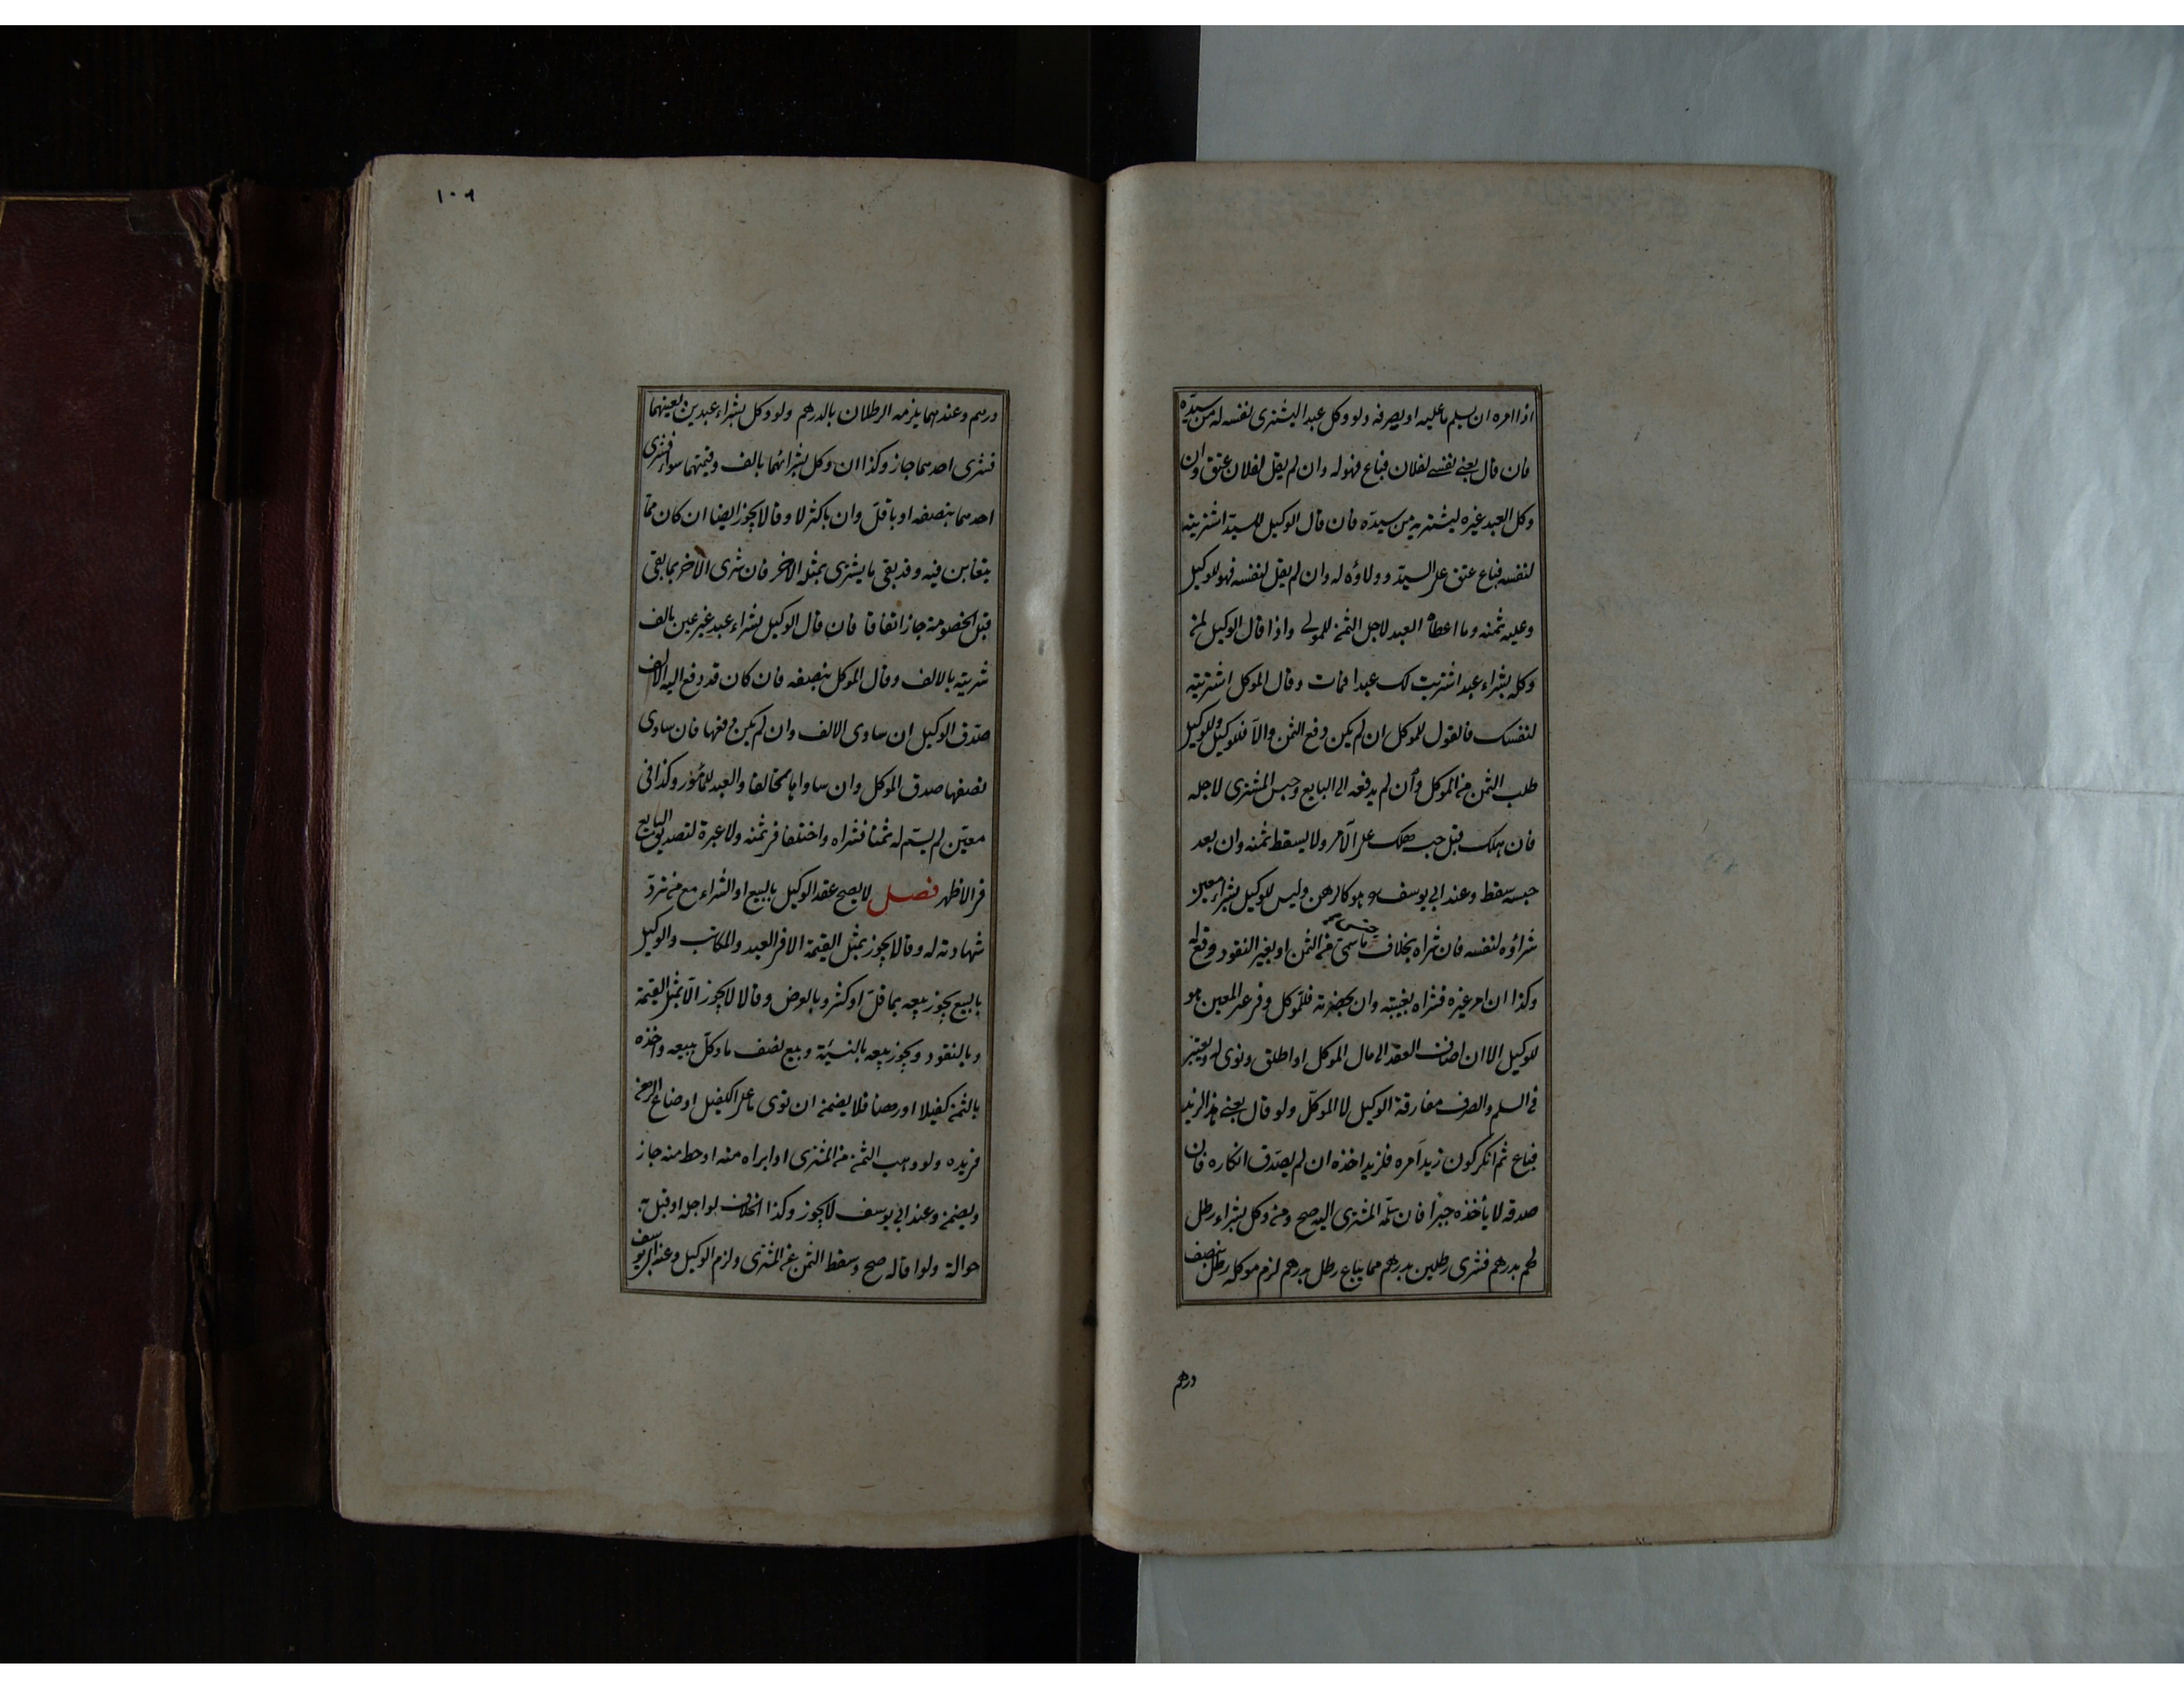 اذا امره ان يسلم ما عليه او يصرفه ولو وكل عبدا ليشترى نفسه له من سيده
فان قال بعنى نفسى لفلان فباع فهو له وان لم يقل لفلان عتق وان
وكل العبد غيره ليشتريه من سيده فان قال الوكيل للسيد اشتريته
لنفسه فباع عتق على السيد وولاؤه له وان لم يقل لنفسه فهو للوكيل
وعليه ثمنه وما اعطاه العبد لاجل الثمن للمولى واذا قال الوكيل لمن
وكله بشراء عبد اشتريت لك عبدا فمات وقال الموكل اشتريته
لنفسك فالقول للموكل ان لم يكن دفع الثمن والا فللوكيل وللوكيل
طلب الثمن من الموكل وان لم يدفعه الى البايع وحبس المشترى لاجله
فان هلك قبل حبسه هلك على الآمر ولا يسقط ثمنه وان بعد
حبسه سقط وعند ابى يوسف هو كالرهن وليس للوكيل بشراء معين
شراؤه لنفسه فان شراه بخلاف جنس ما سمى من الثمن او بغير النقود وقع له
وكذا ان امر غيره فشراه بغيبته وان بحضرته فللموكل وفى غير المعين هو
للوكيل الا ان اضاف العقد الى مال الموكل او اطلق ونوى له ويعتبر
فى السلم والصرف مفارقة الوكيل لا الموكل ولو قال بعنى هذا لزيد
فباع ثم انكر كون زيد آمره فلزيد اخذه ان لم يصدق انكاره فان
صدقه لا يأخذه جبرا فان سلمه المشترى اليه صح ومن وكل بشراء رطل
لحم بدرهم فشرى رطلين بدرهم مما يباع رطل بدرهم لزم موكله رطل بنصف
درهم
١٠٦
درهم وعندهما يلزمه الرطلان بالدرهم ولو وكل بشراء عبدين بعينهما
فشرى احدهما جاز وكذا ان وكل بشرائهما بالف وقيمتهما سواء فشرى
احدهما بنصفه او باقل وان باكثر لا وقالا يجوز ايضا ان كان مما
يتغابن فيه وقد بقى ما يشترى بمثله الآخر فان شرى الآخر بما بقى
قبل الخصومة جاز اتفاقا فان قال الوكيل بشراء عبد غير عين بالف
شريته بالالف وقال الموكل بنصفه فان كان قد دفع اليه الالف
صدق الوكيل ان ساوى الالف وان لم يكن دفعها فان ساوى
نصفها صدق الموكل وان ساواها تحالفا والعبد للمأمور وكذا فى
معين لم يسم له ثمنا فشراه واختلفا فى ثمنه ولا عبرة لتصديق البايع
فى الاظهر فصل لا يصح عقد الوكيل بالبيع او الشراء مع من ترد
شهادته له وقالا يجوز بمثل القيمة الا فى العبد والمكاتب والوكيل
بالبيع يجوز بيعه بما قل او كثر وبالعرض وقالا لا يجوز الا بمثل القيمة
وبالنقود ويجوز بيعه بالنسيئة وبيع نصف ما وكل ببيعه واخذه
بالثمن كفيلا او رهنا فلا يضمن ان توى ما على الكفيل او ضاع الرهن
فى يده ولو وهب الثمن من المشترى او ابراه منه او حط منه جاز
ويضمن وعند ابى يوسف لا يجوز وكذا الخلاف لو اجله او قبل به
حوالة ولو اقاله صح وسقط الثمن عن المشترى ولزم الوكيل وعند ابى يوسف